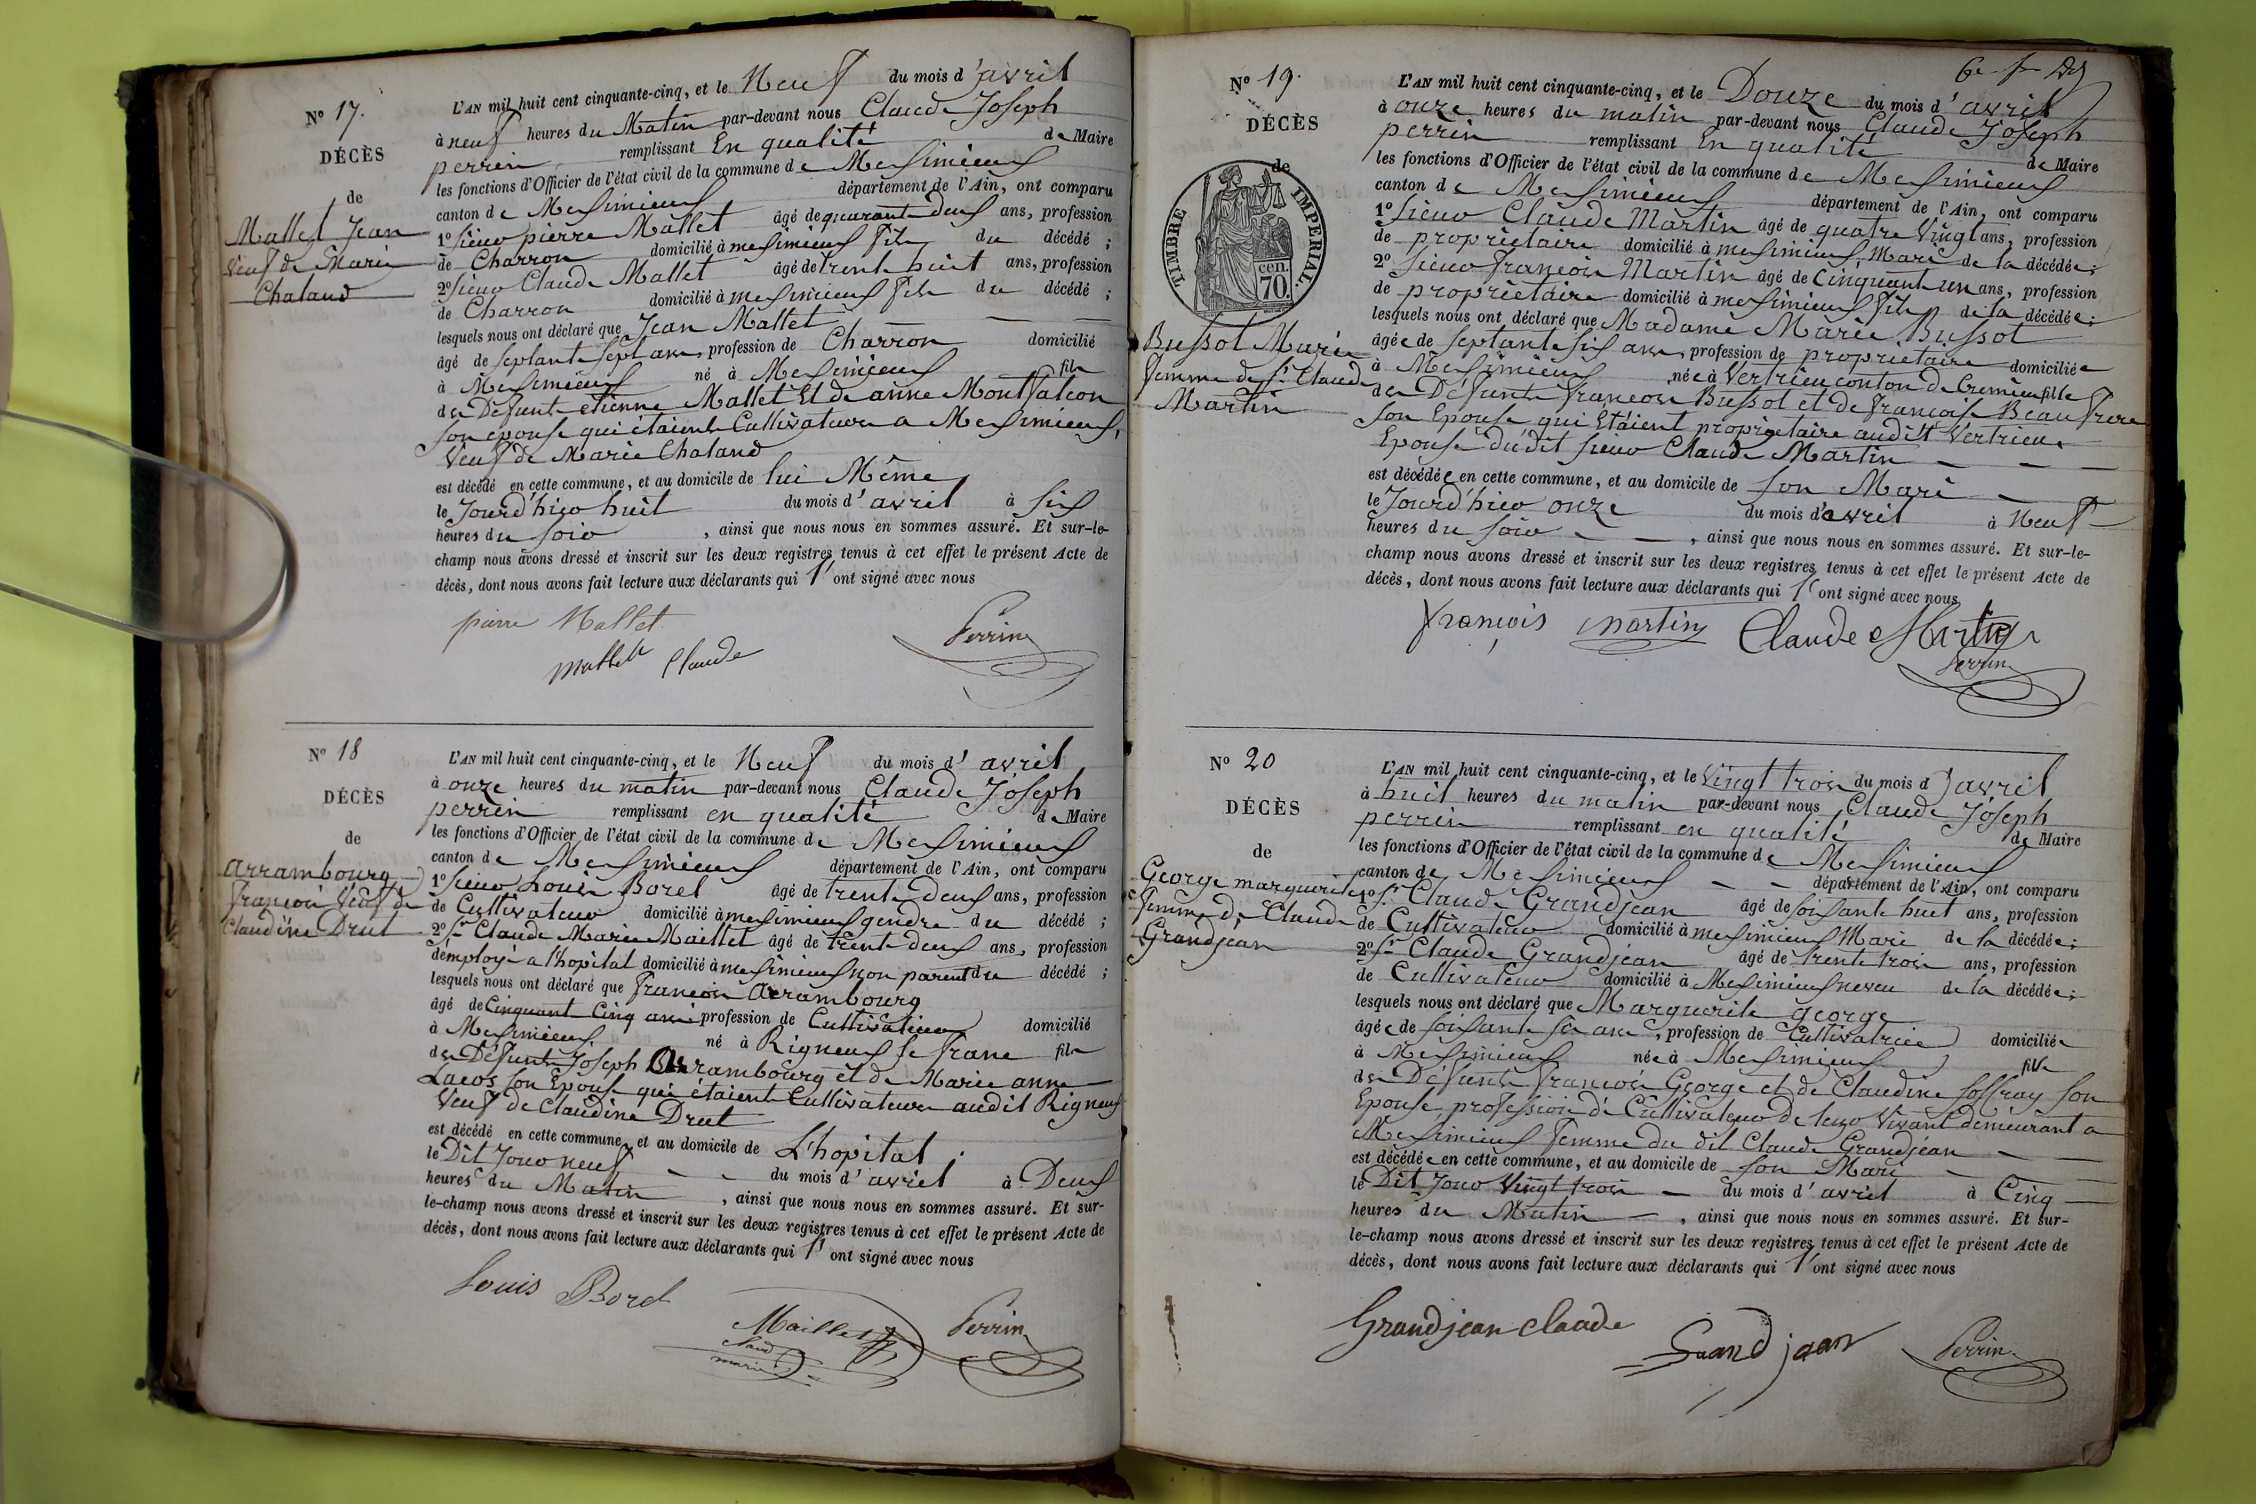 N° 17.
DÉCÈS
de
Mallet Jean
Veuf de Marie
Chaland
L'AN mil huit cent cinquante-cinq, et le Neuf du mois d'avril
à neuf heures du Matin par-devant nous Claude Joseph
perrin remplissant En qualité de Maire
les fonctions d'Officier de l'état civil de la commune de Meximieux
canton de Meximieux département de l'Ain, ont comparu
1° sieur pierre Mallet âgé de quarante deux ans, profession
de Charron domicilié à meximieux fils du décédé ;
2° sieur Claude Mallet âgé de trente huit ans, profession
de Charron domicilié à meximieux fils du décédé ;
lesquels nous ont déclaré que Jean Mallet
âgé de septante sept ans, profession de Charron domicilié
à Meximieux né à Meximieux fils
des Défunts etienne Mallet Et de anne Montfalcon
son epouse qui étaient Cultivateurs a Meximieux,
Veuf de Marie Chaland
est décédé en cette commune, et au domicile de lui Même
le Jourd'hier huit du mois d'avril à six
heures du soir , ainsi que nous nous en sommes assuré. Et sur-le-
champ nous avons dressé et inscrit sur les deux registres tenus à cet effet le présent Acte de
décès, dont nous avons fait lecture aux déclarants qui l'ont signé avec nous
pierre Mallet
Mallet Claude
Perrin
N° 18
DÉCÈS
de
arrambourg
françois Veuf de
Claudine Drut
L'AN mil huit cent cinquante-cinq, et le Neuf du mois d'avril
à onze heures du matin par-devant nous Claude Joseph
perrin remplissant en qualité de Maire
les fonctions d'Officier de l'état civil de la commune de Meximieux
canton de Meximieux département de l'Ain, ont comparu
1° sieur Louis Borel âgé de trente deux ans, profession
de Cultivateur domicilié à meximieux gendre du décédé ;
2° sr Claude Marie Maillet âgé de trente deux ans, profession
d'employé a l'hopital domicilié à meximieux non parent du décédé ;
lesquels nous ont déclaré que françois Arrambourg
âgé de Cinquant Cinq ans profession de Cultivateur domicilié
à Meximieux né à Rigneux le franc fils
des Défunts Joseph Arrambourg et de Marie anne
son Epouse qui étaient Cultivateurs audit Rigneux
Veuf de Claudine Drut
est décédé en cette commune, et au domicile de L'hopital
le Dit Jour neuf du mois d'avril à Deux
heures du Matin , ainsi que nous nous en sommes assuré. Et sur-
le-champ nous avons dressé et inscrit sur les deux registres tenus à cet effet le présent Acte de
décès, dont nous avons fait lecture aux déclarants qui l'ont signé avec nous
Louis Borel
Maillet
Claud
marie
Perrin
N° 19.
DÉCÈS
de
TIMBRE IMPERIAL.
cen.
70.
Bussot Marie
femme de sr Claude
Martin
L'AN mil huit cent cinquante-cinq, et le Douze du mois d'avril
à onze heures du matin par-devant nous Claude Joseph
perrin remplissant En qualité de Maire
les fonctions d'Officier de l'état civil de la commune de Meximieux
canton de Meximieux département de l'Ain, ont comparu
1° sieur Claude Martin âgé de quatre Vingt ans, profession
de propriétaire domicilié à meximieux Mari de la décédée ;
2° sieur françois Martin âgé de Cinquant un ans, profession
de propriétaire domicilié à meximieux fils de la décédée ;
lesquels nous ont déclaré que Madame Marie Bussot
âgée de septante six ans, profession de propriétaire domiciliée
à Meximieux née à Vertrieu conton de Cremieu fille
des Défunts françois Bussot et de françoise Beaufrere
son Epouse qui Etaient propriétaire audit Vertrieu
Epouse dudit sieur Claude Martin
est décédée en cette commune, et au domicile de son Mari
le Jourd'hier onze du mois d'avril à Neuf
heures du soir , ainsi que nous nous en sommes assuré. Et sur-le-
champ nous avons dressé et inscrit sur les deux registres tenus à cet effet le présent Acte de
décès, dont nous avons fait lecture aux déclarants qui l'ont signé avec nous
françois martin
Claude Martin
Perrin
N° 20
DÉCÈS
de
George marguerite
femme de Claude
Grandjean
L'AN mil huit cent cinquante-cinq, et le Vingt trois du mois d'avril
à huit heures du matin par-devant nous Claude Joseph
perrin remplissant en qualité de Maire
les fonctions d'Officier de l'état civil de la commune de Meximieux
canton de Meximieux département de l'Ain, ont comparu
1° sr Claude Grandjean âgé de soixante huit ans, profession
de Cultivateur domicilié à meximieux Mari de la décédée ;
2° sr Claude Grandjean âgé de trente trois ans, profession
de Cultivateur domicilié à Meximieux neveu de la décédée ;
lesquels nous ont déclaré que Marguerite george
âgée de soixante ans, profession de Cultivatrice domiciliée
à Meximieux née à Meximieux fille
des Défunts françois George et de Claudine Joffray son
Epouse profession de Cultivateur de leur Vivant demeurant a
Meximieux femme du dit Claude Grandjean
est décédée en cette commune, et au domicile de son Mari
le Dit Jour Vingt trois du mois d'avril à Cinq
heures du Matin , ainsi que nous nous en sommes assuré. Et sur-
le-champ nous avons dressé et inscrit sur les deux registres tenus à cet effet le présent Acte de
décès, dont nous avons fait lecture aux déclarants qui l'ont signé avec nous
Grandjean claude
Grandjean
Perrin